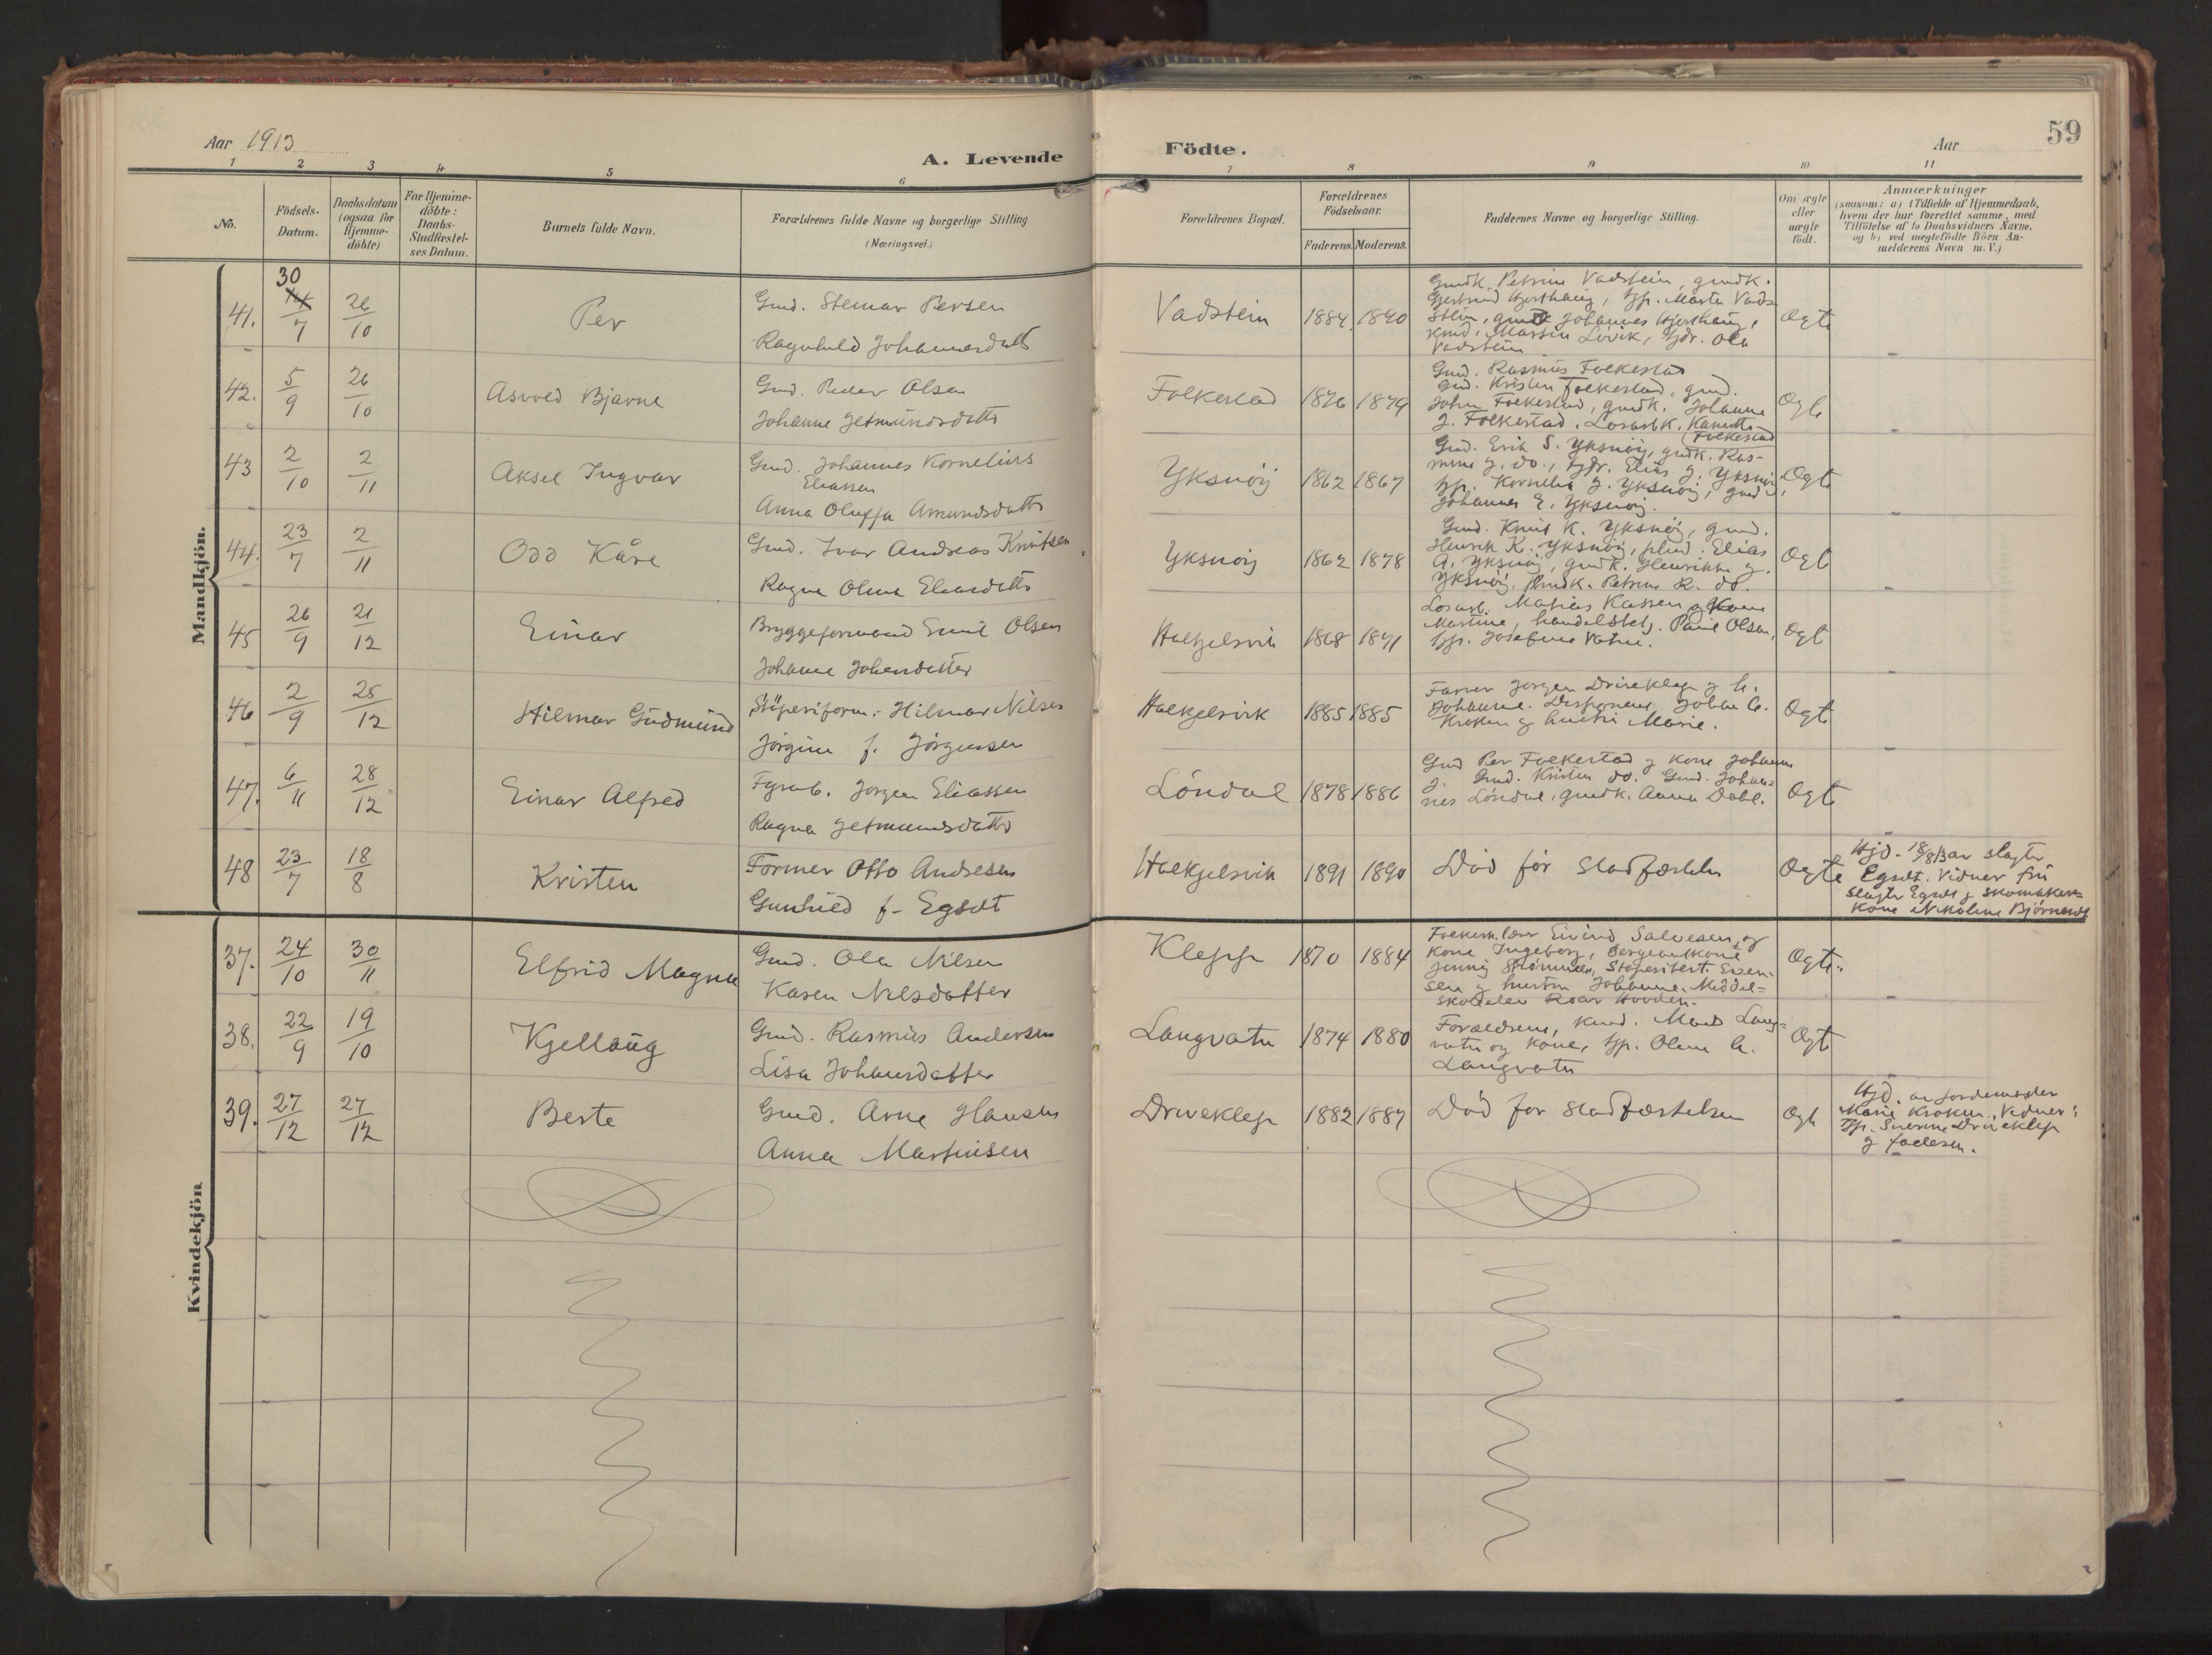 Aar 1913
A. Levende
Födte.
Aar
59
1 2 3 4 5 6 7 8 9 10 11
No.
Födsels-
Datum.
Daabsdatum
(ogsaa for
Hjemme-
döbte)
For Hjemme-
döbte:
Daabs-
Stadfæstel-
ses Datum.
Barnets fulde Navn.
Forældrenes fulde Navne og borgerlige Stilling.
(Næringsvei.)
Forældrenes Bopæl.
Forældrenes
Födselsaar.
Faderens. Moderens.
Faddernes Navne og borgerlige Stilling.
Om ægte
eller
uægte
födt.
Anmærkninger
(saasom: a) i Tilfælde af Hjemmedaab,
hvem der har forrettet samme, med
Tilföielse af to Daabsvidners Navne.
og b) ved uægtefödte Börn An-
melderens Navn m. V.)
Mandkjön.
41. 30/7 26/10 Per
Gmd. Stemar Persen
Ragnhild Johannesdatt
Vadstein 1884 1890
Gmdk. Petrine Vadstein, gmdk.
Gjertrud Hjorthaug, tjp. Marta Vad-
stein, gmd Johannes Hjorthaug,
Martin Lövik, tjdr. Ola
Vadstein
Ogte
42. 5/9 26/10 Asvold Bjarne
Gmd. Peder Olsen
Johanne Jetmundsdatts
Folkestad 1876 1879
Gmd. Rasmus Folkestad
gmd. Kristen Folkestad, gmd.
John Folkestad, gmdk. Johanne
J. Folkestad. Losarbk.
Folkestad
Ogte
43 2/10 2/11 Aksel Ingvar
Gmd. Johannes Kornelius
Eliassen
Anna Oluffa Amundsdatts
Yksnöy 1862 1867
Gmd. Erik S. Yksnöy, gmdk. Ras-
mine J. do., tjdr. Elias J. Yksnöy
tjp. Kornelia J. Yksnöy, gmd
Johannes E. Yksnöy.
Ogte
44. 23/7 2/11 Odd Kåre
Gmd. Ivar Andreas Knutsen
Ragna Oline Eliasdatts
Yksnöy 1862 1878
Gmd. Knut K. Yksnöy, gmd.
Henrik K. Yksnöy, Elias
A. Yksnöy, gmdk. Henrikke J.
Yksnöy, gmdk. Petrine K. do.
Ogt
45 26/9 21/12 Einar
Bryggeformand Emil Olsen
Johanne Johansdatter
Hækjelsvik 1868 1871
Losarb. Matias Kassen og Kone
Martine, handelsbetj. Paul Olsen,
tjp. Josefine Vatne.
Ogt
46 2/9 25/12 Hilmar Gudmund
Stöperiform. Hilmar Nilsen
Jörgine f. Jörgensen
Hækjelsvik 1885 1885
Farver Jorgen Driveklep og h.
Johanne. Disponent Johan
Kroken og hustru Marie.
Ogte
47. 6/11 28/12 Einar Alfred
Fyrarb. Jorgen Eliassen
Ragna Jetmundsdatts
Löndal 1878 1886
Gmd Per Folkestad og kone Johanne
J. Gmd. Kristen do. Gmd. Johan-
nes Löndal, gmdk. Anna Dahl.
Ogte
48 23/7 18/8 Kristen
Former Otto Andresen
Gunhild f. Egset
Hækjelsvik 1891 1890
Död för Stadfæstelse
Ogte
Hjd. 18/8 13 av slagter
Egset. Vidner fru
slagter Egset og skomaker-
kone Nikoline Björnerud
Kvindekjön
37. 24/10 30/11 Elfrid Magna
Gmd. Ola Nilsen
Karen Nilsdatter
Klepp 1870 1884
Folkesk.lærer Eivind Salvesen, og
Kone Ingeborg,
Jenny Stöperibest. Even-
sen og hustru Johanne. Middel-
skoleelev Roar Hovden.
Ogte
38. 22/9 19/10 Kjellaug
Gmd. Rasmus Andersen
Lisa Johansdatter
Langvatn 1874 1880
Forældrene, Mads Lang-
vatn og kone, tjp. Oline
Langvatn
Ogt
39. 27/12 27/12 Berte
Gmd. Arne Hansen
Anna Martinsen
Driveklep 1882 1887
Död for Stadfæstelsen
Ogte
Hjd. av jordemoder
Marie Kroken. Vidner:
tjp. Driveklep
og faderen.